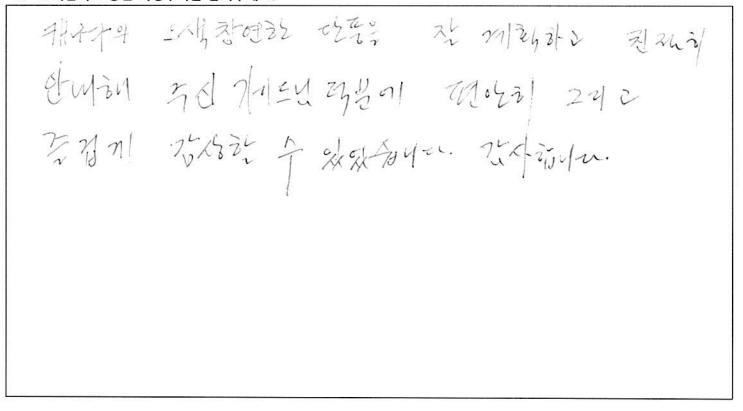 캐나다의 오색창연한 단풍을 잘 계획하고 친절히
안내해 주신 가이드님 덕분에 편안히 그리고
즐겁게 감상할 수 있었습니다. 감사합니다.